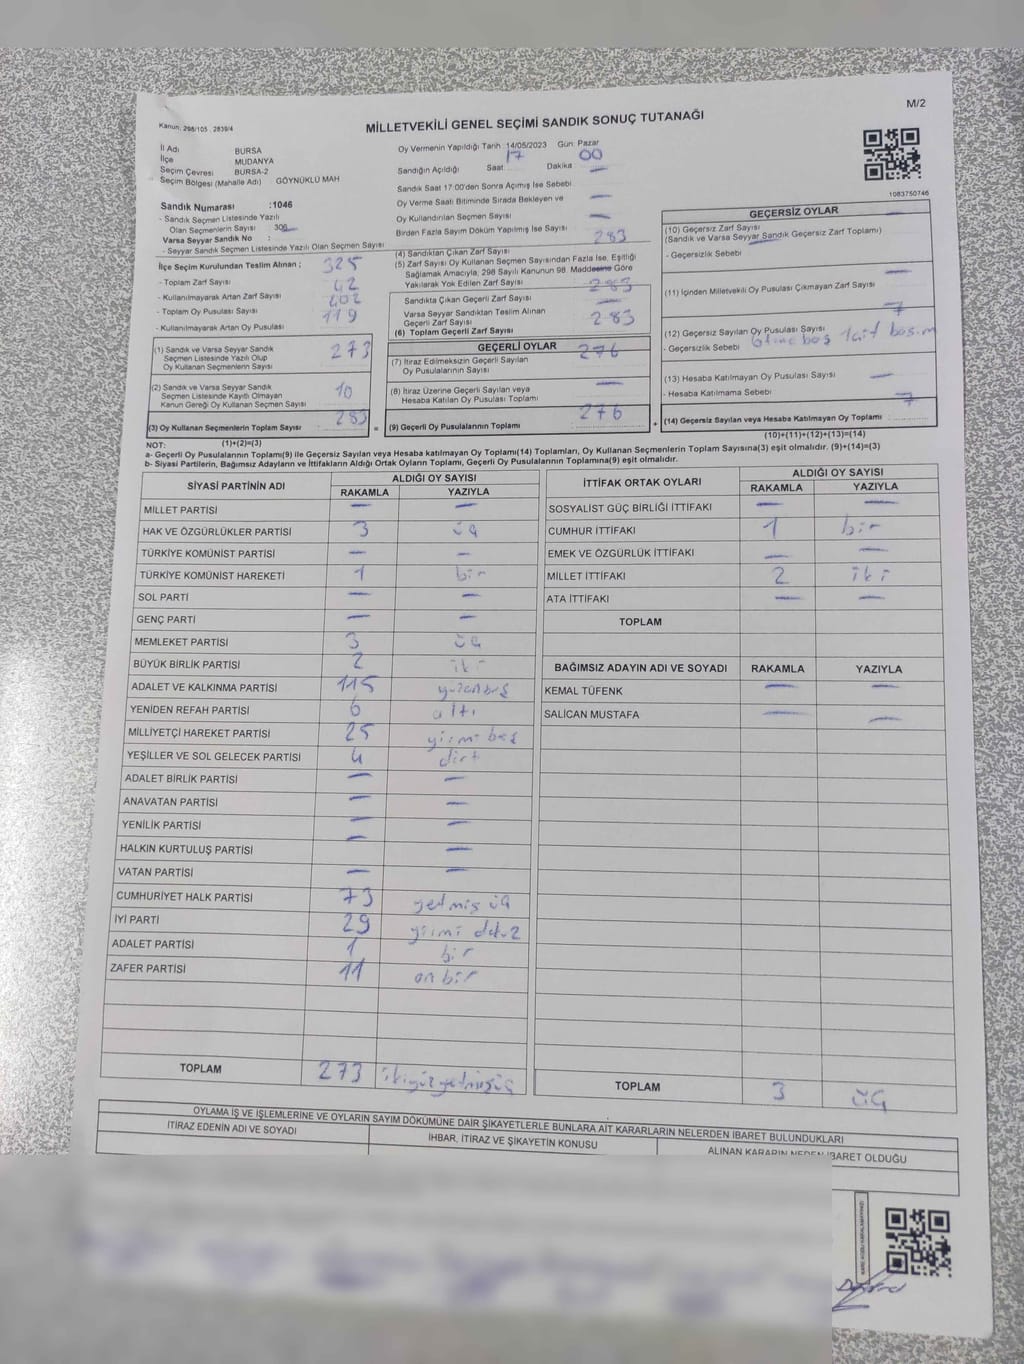 M/2
Kanun: 298/105 , 2839/4
MİLLETVEKİLİ GENEL SEÇİMİ SANDIK SONUÇ TUTANAĞI
İl Adı BURSA
İlçe MUDANYA
Seçim Çevresi BURSA-2
Seçim Bölgesi (Mahalle Adı) GÖYNÜKLÜ MAH
Sandık Numarası :1046
- Sandık Seçmen Listesinde Yazılı
Olan Seçmenlerin Sayısı
Varsa Seyyar Sandık No :
- Seyyar Sandık Seçmen Listesinde Yazılı Olan Seçmen Sayısı
İlçe Seçim Kurulundan Teslim Alınan ;
- Toplam Zarf Sayısı 325
- Kullanılmayarak Artan Zarf Sayısı 42
- Toplam Oy Pusulası Sayısı 402
- Kullanılmayarak Artan Oy Pusulası 119
(1) Sandık ve Varsa Seyyar Sandık
Seçmen Listesinde Yazılı Olup
Oy Kullanan Seçmenlerin Sayısı 273
(2) Sandık ve Varsa Seyyar Sandık
Seçmen Listesinde Kayıtlı Olmayan
Kanun Gereği Oy Kullanan Seçmen Sayısı 10
(3) Oy Kullanan Seçmenlerin Toplam Sayısı 283 =
Oy Vermenin Yapıldığı Tarih : 14/05/2023 Gün: Pazar
Sandığın Açıldığı Saat 17 Dakika 00
Sandık Saat 17:00'den Sonra Açılmış İse Sebebi —
Oy Verme Saati Bitiminde Sırada Bekleyen ve
Oy Kullandırılan Seçmen Sayısı —
Birden Fazla Sayım Döküm Yapılmış İse Sayısı —
(4) Sandıktan Çıkan Zarf Sayısı 283
(5) Zarf Sayısı Oy Kullanan Seçmen Sayısından Fazla İse, Eşitliği
Sağlamak Amacıyla, 298 Sayılı Kanunun 98. Maddesine Göre
Yakılarak Yok Edilen Zarf Sayısı —
Sandıkta Çıkan Geçerli Zarf Sayısı 283
Varsa Seyyar Sandıktan Teslim Alınan
Geçerli Zarf Sayısı —
(6) Toplam Geçerli Zarf Sayısı 283
GEÇERLİ OYLAR
(7) İtiraz Edilmeksizin Geçerli Sayılan
Oy Pusulalarının Sayısı 276
(8) İtiraz Üzerine Geçerli Sayılan veya
Hesaba Katılan Oy Pusulası Toplamı —
(9) Geçerli Oy Pusulalarının Toplamı 276 +
1083750746
GEÇERSİZ OYLAR
(10) Geçersiz Zarf Sayısı —
(Sandık ve Varsa Seyyar Sandık Geçersiz Zarf Toplamı)
- Geçersizlik Sebebi —
(11) İçinden Milletvekili Oy Pusulası Çıkmayan Zarf Sayısı —
(12) Geçersiz Sayılan Oy Pusulası Sayısı 7
- Geçersizlik Sebebi
(13) Hesaba Katılmayan Oy Pusulası Sayısı —
- Hesaba Katılmama Sebebi —
(14) Geçersiz Sayılan veya Hesaba Katılmayan Oy Toplamı 7
(10)+(11)+(12)+(13)=(14)
NOT: (1)+(2)=(3)
a- Geçerli Oy Pusulalarının Toplamı(9) ile Geçersiz Sayılan veya Hesaba katılmayan Oy Toplamı(14) Toplamları, Oy Kullanan Seçmenlerin Toplam Sayısına(3) eşit olmalıdır. (9)+(14)=(3)
b- Siyasi Partilerin, Bağımsız Adayların ve İttifakların Aldığı Ortak Oyların Toplamı, Geçerli Oy Pusulalarının Toplamına(9) eşit olmalıdır.
SİYASİ PARTİNİN ADI ALDIĞI OY SAYISI
RAKAMLA YAZIYLA
MİLLET PARTİSİ — —
HAK VE ÖZGÜRLÜKLER PARTİSİ 3 üç
TÜRKİYE KOMÜNİST PARTİSİ — —
TÜRKİYE KOMÜNİST HAREKETİ 1 bir
SOL PARTİ — —
GENÇ PARTİ — —
MEMLEKET PARTİSİ 3 üç
BÜYÜK BİRLİK PARTİSİ 2 iki
ADALET VE KALKINMA PARTİSİ 115
YENİDEN REFAH PARTİSİ 6 altı
MİLLİYETÇİ HAREKET PARTİSİ 25 yirmi beş
YEŞİLLER VE SOL GELECEK PARTİSİ 4 dört
ADALET BİRLİK PARTİSİ — —
ANAVATAN PARTİSİ — —
YENİLİK PARTİSİ — —
HALKIN KURTULUŞ PARTİSİ — —
VATAN PARTİSİ — —
CUMHURİYET HALK PARTİSİ 73 yetmiş üç
İYİ PARTİ 29 yirmi dokuz
ADALET PARTİSİ 1 bir
ZAFER PARTİSİ 11 on bir
TOPLAM 273 ikiyüzyetmişüç
İTTİFAK ORTAK OYLARI ALDIĞI OY SAYISI
RAKAMLA YAZIYLA
SOSYALİST GÜÇ BİRLİĞİ İTTİFAKI — —
CUMHUR İTTİFAKI 1 bir
EMEK VE ÖZGÜRLÜK İTTİFAKI — —
MİLLET İTTİFAKI 2 iki
ATA İTTİFAKI — —
TOPLAM
BAĞIMSIZ ADAYIN ADI VE SOYADI RAKAMLA YAZIYLA
KEMAL TÜFENK — —
SALİCAN MUSTAFA — —
TOPLAM 3 üç
OYLAMA İŞ VE İŞLEMLERİNE VE OYLARIN SAYIM DÖKÜMÜNE DAİR ŞİKAYETLERLE BUNLARA AİT KARARLARIN NELERDEN İBARET BULUNDUKLARI
İTİRAZ EDENİN ADI VE SOYADI İHBAR, İTİRAZ VE ŞİKAYETİN KONUSU ALINAN KARARIN NEDEN İBARET OLDUĞU